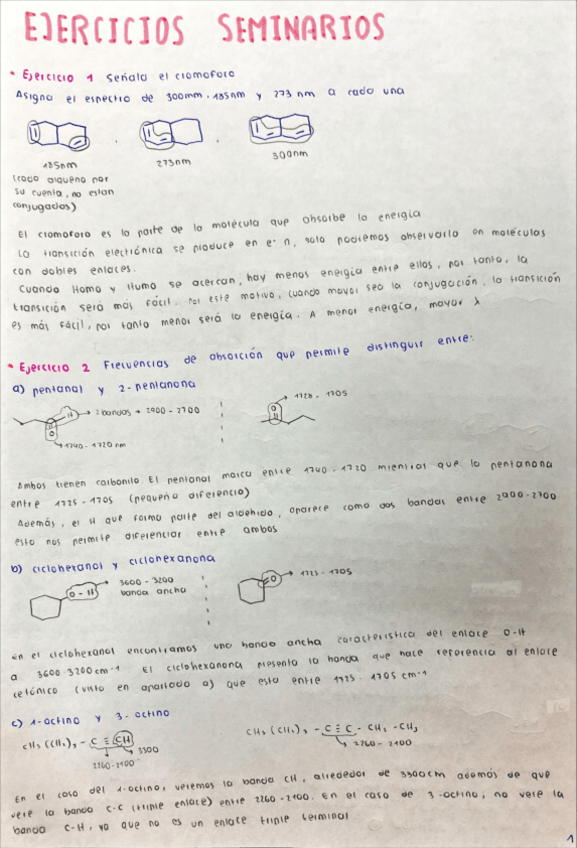 EJERCICIOS SEMINARIOS
• Ejercicio 1 Señala el cromoforo
Asigna el espectro de 300mm, 185nm y 273 nm a cada una
185nm
(cada alqueno por
su cuenta, no estan
conjugados)
273nm
300nm
El cromoforo es la parte de la molécula que absorbe la energía
La transición electrónica se produce en e- π, solo podremos observarlo en moléculas
con dobles enlaces.
Cuando Homo y Humo se acercan, hay menos energía entre ellos, por tanto, la
transición será más fácil. Por este motivo, cuando mayor sea la conjugación, la transición
es más fácil, por tanto menor será la energía. A menor energía, mayor λ
• Ejercicio 2 Frecuencias de absorción que permite distinguir entre:
a) pentanal y 2-pentanona
H → 2 bandas → 2900 - 2700
O
1740 - 1720 nm
1725 - 1705
O
Ambos tienen carbonilo. El pentanal marca entre 1740 - 1720 mientras que la pentanona
entre 1725 - 1705 (pequeña diferencia)
Además, el H que forma parte del aldehido, aparece como dos bandas entre 2900-2700
esto nos permite diferenciar entre ambos
b) ciclohexanol y ciclohexanona
O - H
3600 - 3200
banda ancha
O
1725 - 1705
En el ciclohexanol encontramos una banda ancha característica del enlace O-H
a 3600-3200cm-1 El ciclohexanona presenta la banda que hace referencia al enlace
cetónico (visto en apartado a) que esta entre 1725 - 1705 cm-1
c) 1-octino y 3-octino
CH3 (CH2)5 - C ≡ CH
3300
2260-2100
CH3 (CH2)3 - C ≡ C - CH2 - CH3
2260 - 2100
En el caso del 1-octino, veremos la banda CH, alrededor de 3300cm además de que
veré la banda C-C (triple enlace) entre 2260-2100. En el caso de 3-octino, no veré la
banda C-H, ya que no es un enlace triple terminal
1